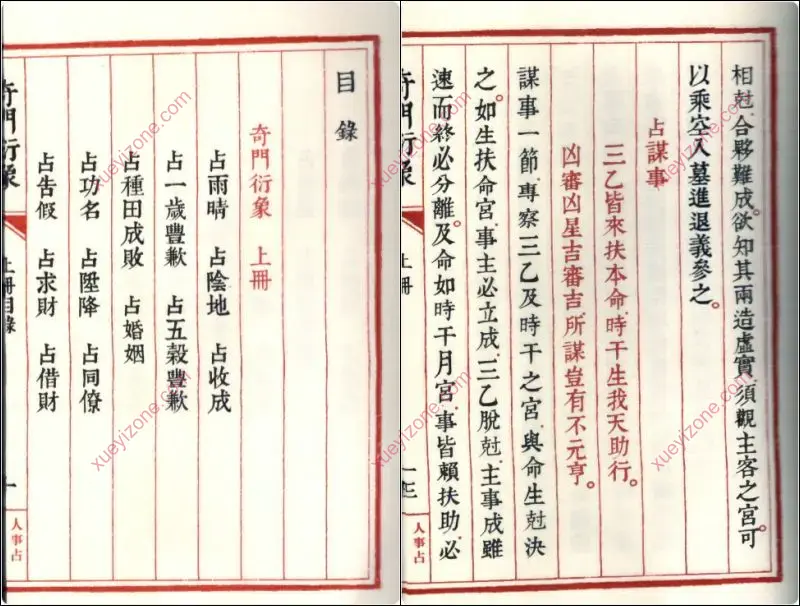 目錄
奇門衍象 上冊
占雨晴 占陰地 占收成
占一歲豐歉 占五穀豐歉
占種田成敗 占婚姻
占功名 占陞降 占同僚
占告假 占求財 占借財
奇門衍象 上冊目錄
人事占
相尅合夥難成。欲知其兩造虛實須觀主客之宮可
以乘空入墓進退義參之。
占謀事
三乙皆來扶本命時干生我天助行。
凶審凶星吉審吉所謀豈有不元亨。
謀事一節專察三乙及時干之宮與命生尅決
之。如生扶命宮事主必立成三乙脫尅主事成雖
速而終必分離。及命如時干月宮事皆賴扶助必
奇門衍象 上冊
人事占
xueyizone.com
xueyizone.com
xueyizone.com
xueyizone.com
xueyizone.com
xueyizone.com